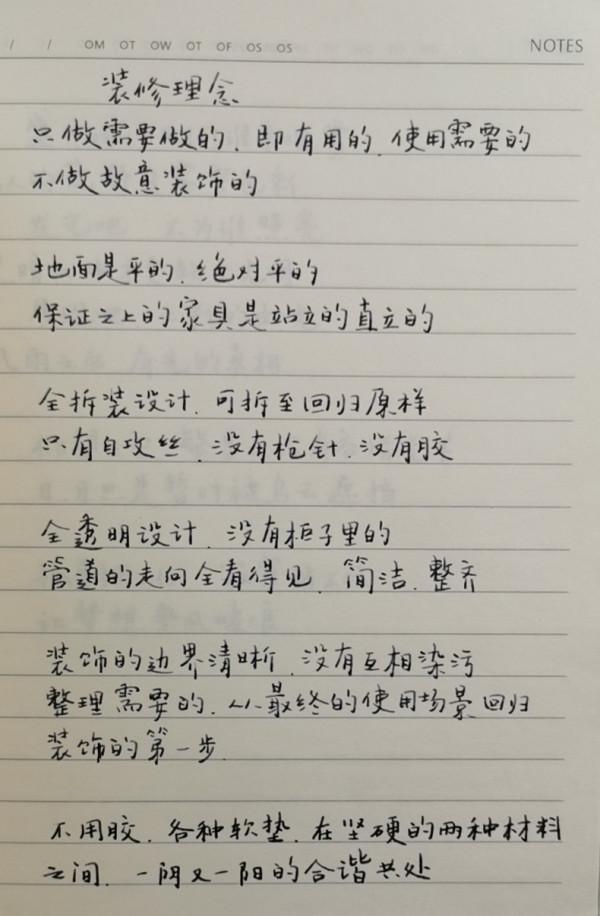 / / OM OT OW OT OF OS OS NOTES
装修理念
只做需要做的.即有用的.使用需要的
不做故意装饰的
地面是平的.绝对平的
保证之上的家具是站立的直立的
全拆装设计.可拆至回归原样
只有自攻丝.没有枪针.没有胶
全透明设计.没有柜子里的
管道的走向全看得见.简洁.整齐
装饰的边界清晰.没有互相染污
整理需要的.从最终的使用场景回归
装饰的第一步.
不用胶.各种软垫.在坚硬的两种材料
之间.一阴又一阳的合谐共处